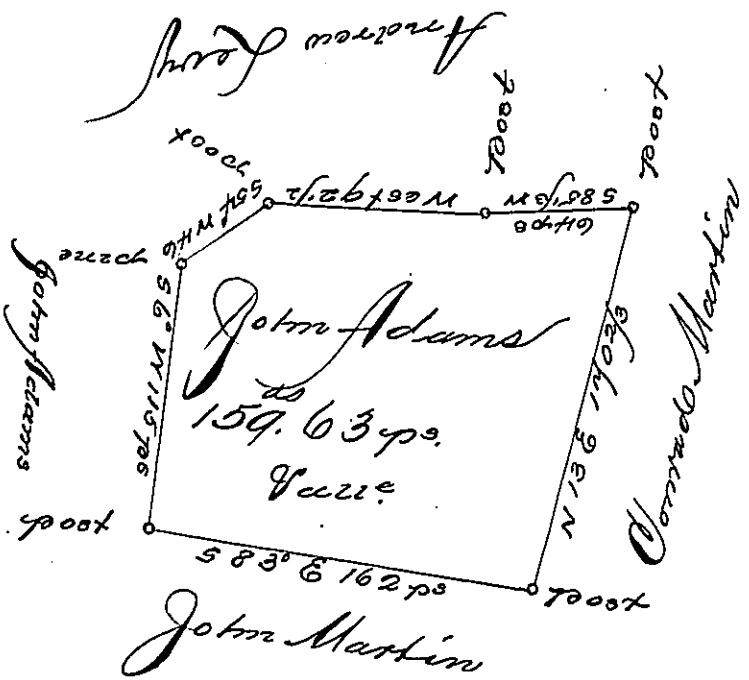 Andrew Levy
Post
Post
post
S 54° W 46
West 92 1/2
S 85 1/3 W
64 ps
pine
John Adams
S 6° W 115 ps
John Adams
as
159. 63 ps.
N 13 E 170 2/3
Conrad Martin
post
S 83° E 162 ps
Post
John Martin